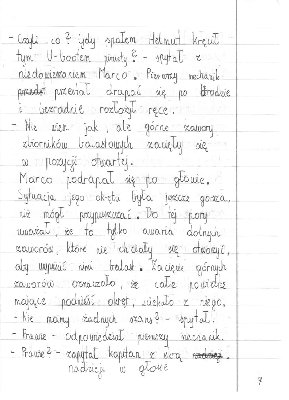 - Czyli co? gdy spałem Helmut kręcił
tym U-bootem piruety? - spytał z
niedowierzaniem Marco. Pierwszy mechanik
przestał drapać się po brodzie
i bezradnie rozłożył ręce.
- Nie wiem jak, ale górne zawory
zbiorników balastowych zacięły się
w pozycji otwartej.
Marco podrapał się po głowie.
Sytuacja jego okrętu była jeszcze gorsza,
niż mógł przypuszczać. Do tej pory
uważał, że to tylko awaria dolnych
zaworów, które nie chciały się otworzyć,
aby wypuścić balast. Zacięcie górnych
zaworów oznaczało, że całe powietrze
mające podnieść okręt, uciekło z niego.
- Nie mamy żadnych szans? - spytał.
- Prawie - odpowiedział pierwszy mechanik.
- Prawie? - zapytał kapitan z
nadzieją w głosie
7